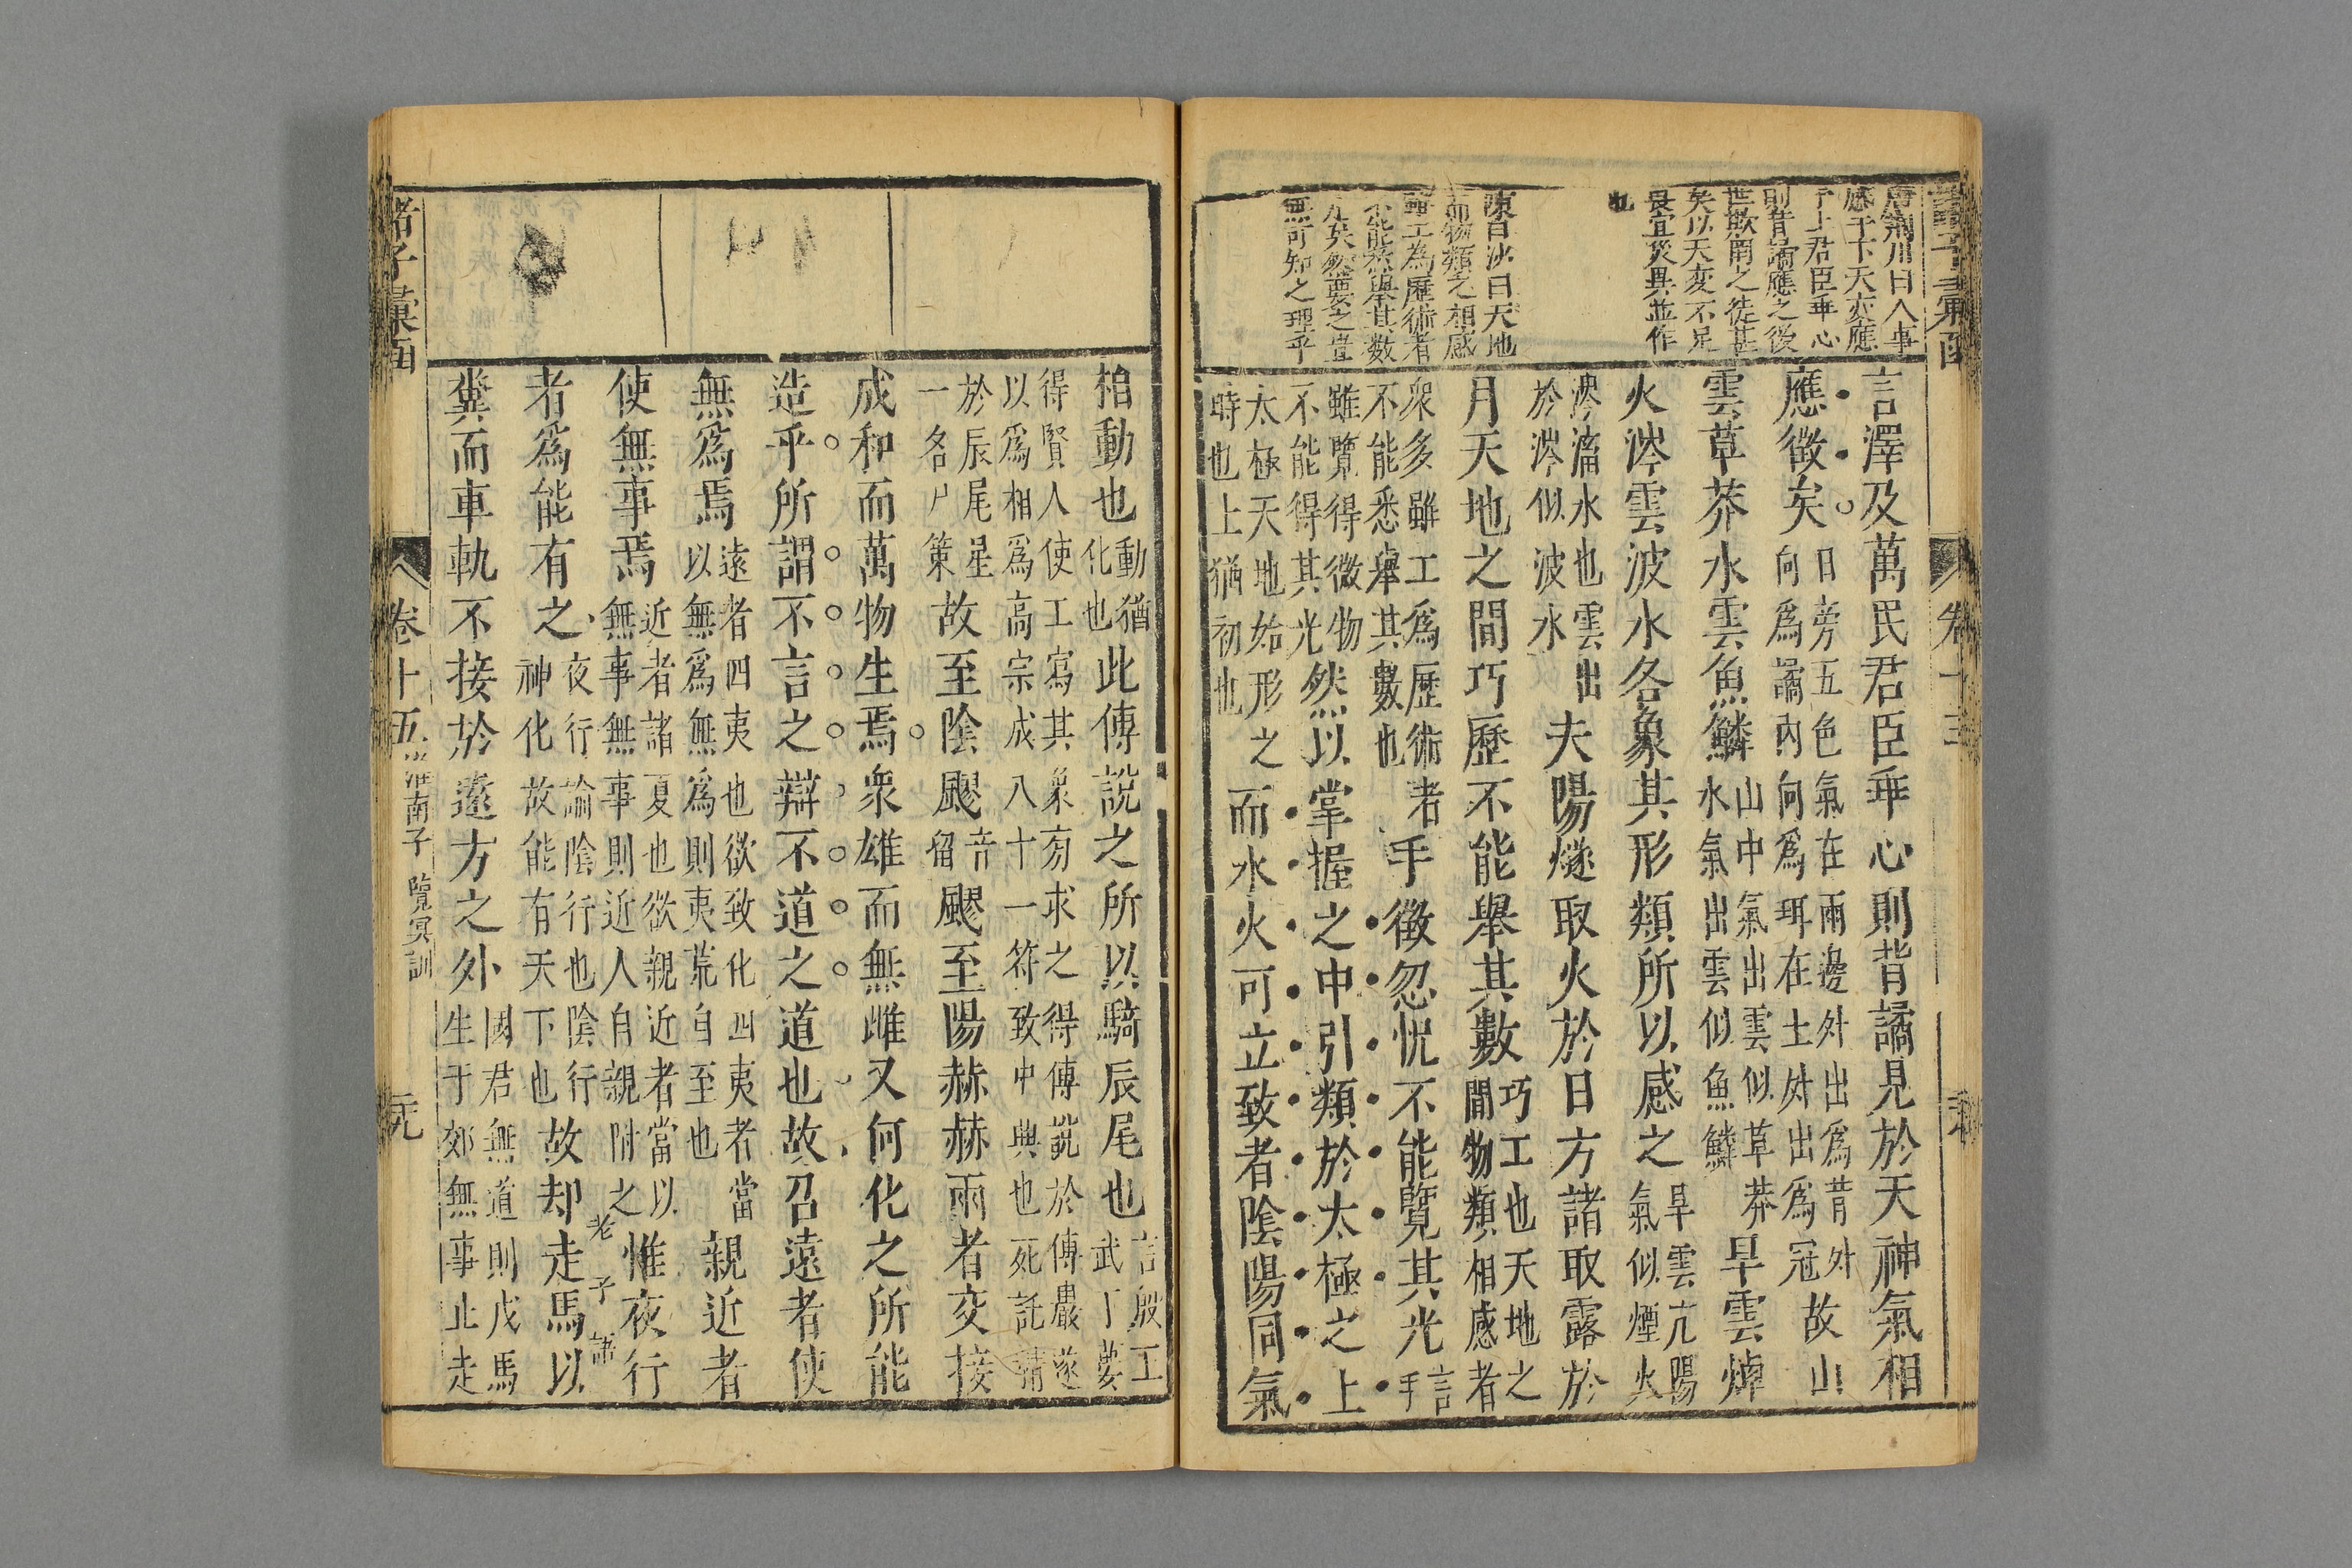 諸子彙函
卷十五
唐荊川曰人事
感于下天亦應
于上君臣乖心
則背譎應之後
世欺罔之徒甚
矣以天変不足
畏宜災異並作
也
陳白沙曰天地
而物類之相感
雖工為歷術者
不能悉舉其數
矣然要之豈
無可知之理乎
言澤及萬民君臣乖心則背譎見於天神氣相
應徵矣日旁五色氣在兩邊外出為背外
向為譎內向為珥在上外出為冠故山
雲草莽水雲魚鱗山中氣出雲似草莽
水氣出雲似魚鱗旱雲煙
火涔雲波水各象其形類所以感之旱雲亢陽
氣似煙火
涔濇水也雲出
於涔似波水夫陽燧取火於日方諸取露於
月天地之間巧歷不能舉其數巧工也天地之
間物類相感者
衆多雖工爲歷術者
不能悉舉其數也手徵忽怳不能覽其光言
手
雖覽得微物
不能得其光然以掌握之中引類於太極之上
太極天地始形之
時也上猶初也而水火可立致者陰陽同氣
相動也動猶
化也此傅說之所以騎辰尾也言殷王
武丁夢
得賢人使工寫其象旁求之得傅說於傅巖遂
以爲相爲高宗成八十一符致中興也死託精
於辰尾星
一名尸策故至陰飂音
留飂至陽赫赫兩者交接
成和而萬物生焉衆雄而無雌又何化之所能
造乎所謂不言之辯不道之道也故召遠者使
無爲焉遠者四夷也欲致化四夷者當
以無爲無爲則夷荒自至也親近者
使無事焉近者諸夏也欲親近者當以
無事無事則近人自親附之惟夜行
者爲能有之夜行論陰行也陰行
神化故能有天下也故却走馬以
老子語
糞而車軌不接於遠方之外國君無道則戎馬
生于郊無事止走
諸子彙函
卷十五
淮南子 覽冥訓